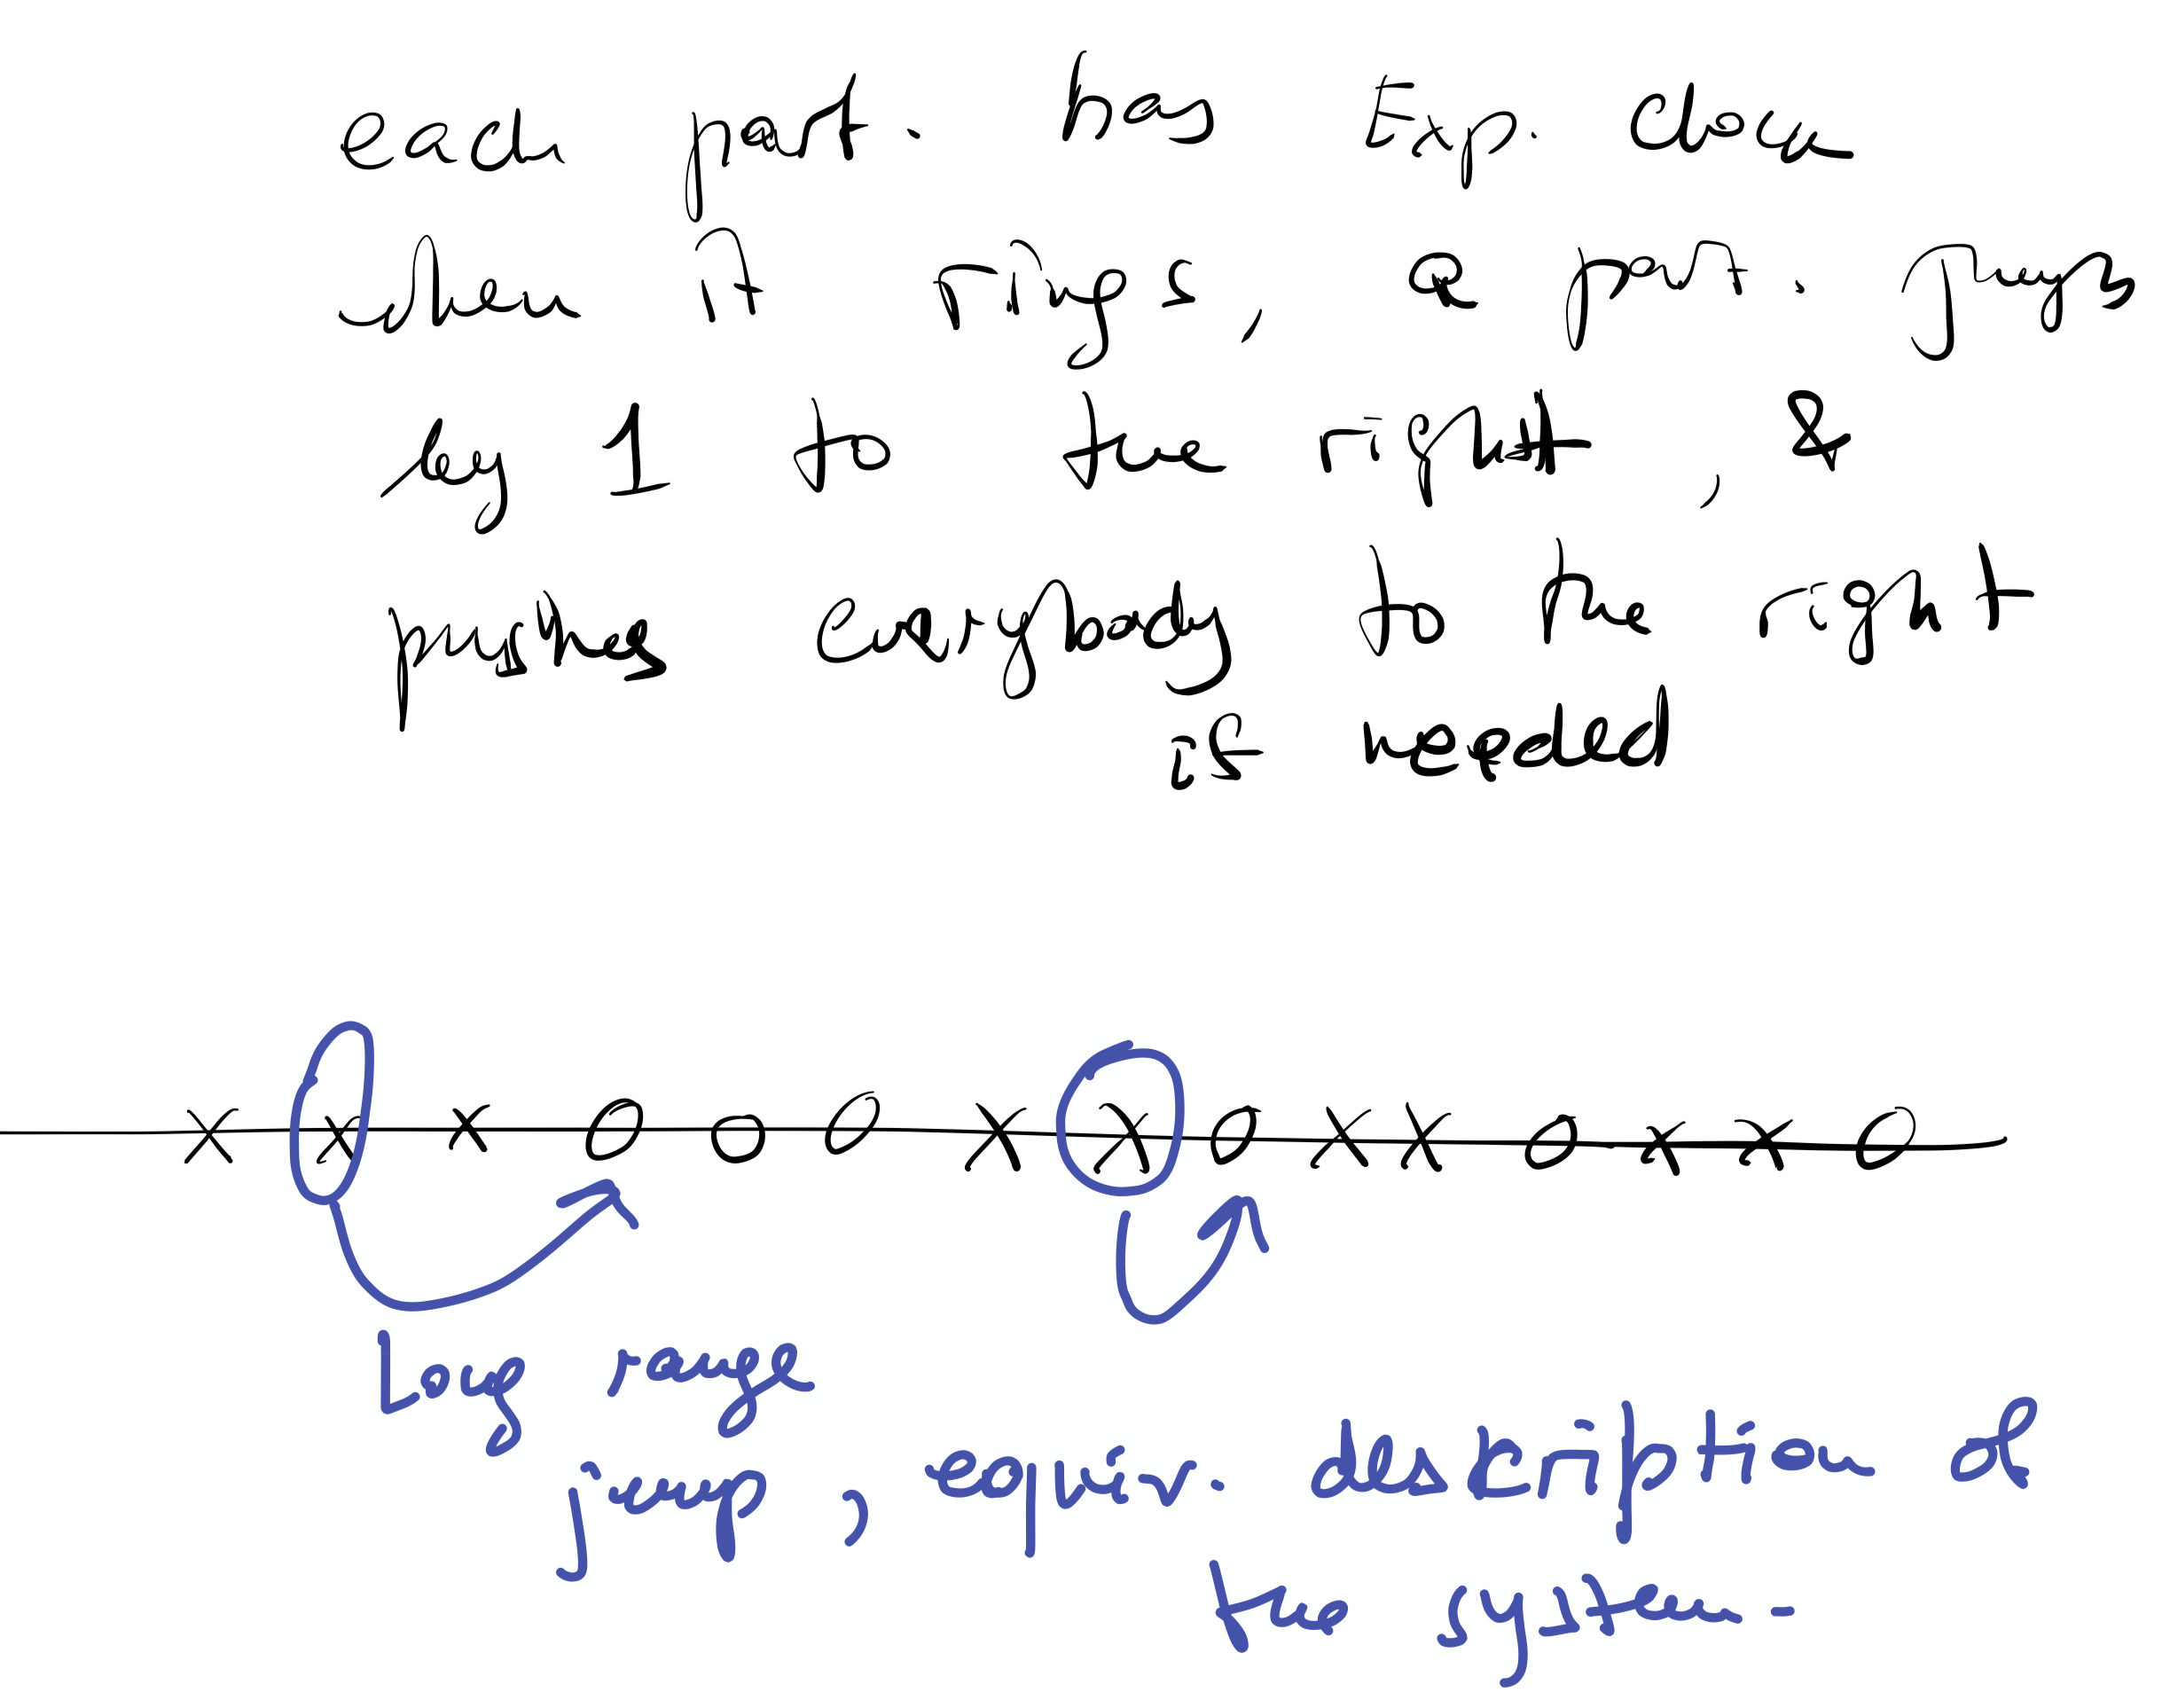 each part. has Exp. clock
when it rings, a part. jumps
by 1 to the right, &
pushes everybody to the right
if needed
x x x o o o x x o x x o x x o
Long range
jump, equiv. description of
the system -